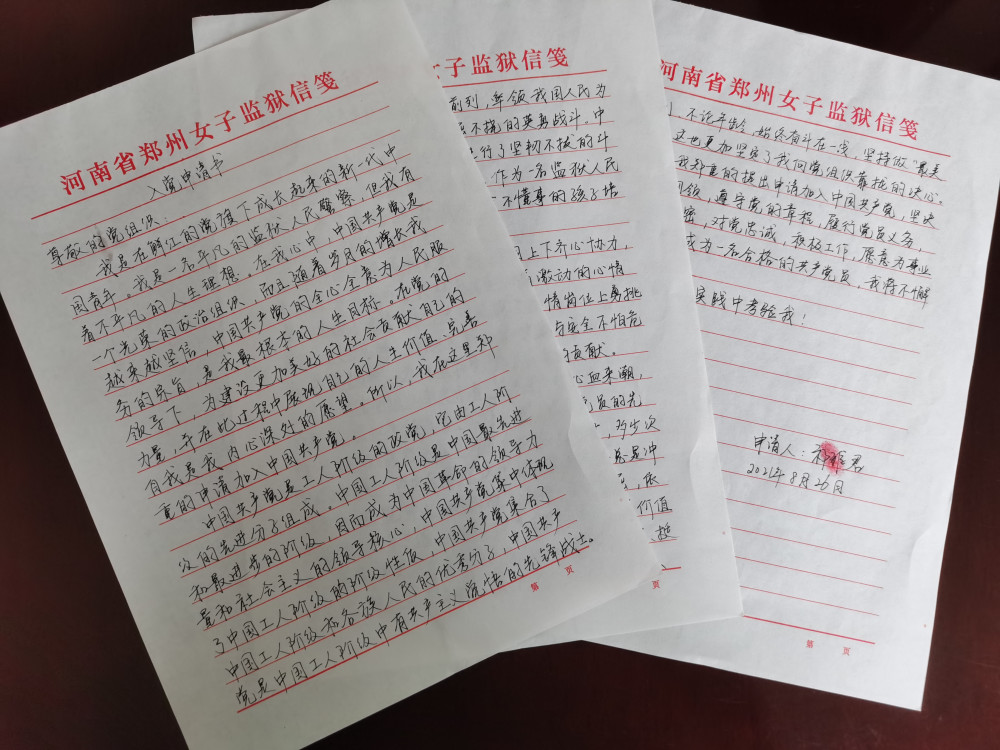 河南省郑州女子监狱信笺
入党申请书
尊敬的党组织:
我是在鲜红的党旗下成长起来的新一代中
国青年。我是一名平凡的监狱人民警察,但我有
着不平凡的人生理想。在我心中,中国共产党是
一个光荣的政治组织,而且随着岁月的增长我
越来越坚信,中国共产党的全心全意为人民服
务的宗旨,是我最根本的人生目标。在党的
领导下,为建设更加美好的社会贡献自己的
力量,并在此过程中展现自己的人生价值、完善
自我是我内心深处的愿望。所以,我在这里郑
重的申请加入中国共产党。
中国共产党是工人阶级的政党,它由工人阶
级的先进分子组成。中国工人阶级是中国最先进
和最进步的阶级,因而成为中国革命的领导力
量和社会主义的领导核心,中国共产党集中体现
了中国工人阶级的阶级性质,中国共产党集合了
中国工人阶级和各族人民的优秀分子,中国共产
党是中国工人阶级中有共产主义觉悟的先锋战士。
第 页
女子监狱信笺
前列,率领我国人民为
不挠的英勇战斗。中
行了坚韧不拔的斗
作为一名监狱人民
不懂事的孩子培
上下齐心协力,
激动的心情
情岗位上勇挑
安全不怕危
贡献。
心血来潮,
党员的先
,所以次
总是冲
,依
价值
,挺
页
河南省郑州女子监狱信笺
,不论年龄,始终奋斗在一线,坚持做"最美
这也更加坚定了我向党组织靠拢的决心。
我郑重的提出申请加入中国共产党,坚决
纲领,遵守党的章程,履行党员义务,
密,对党忠诚,积极工作,愿意为事业
成为一名合格的共产党员,我将不懈
实践中考验我!
申请人:
2021年8月26日
第 页